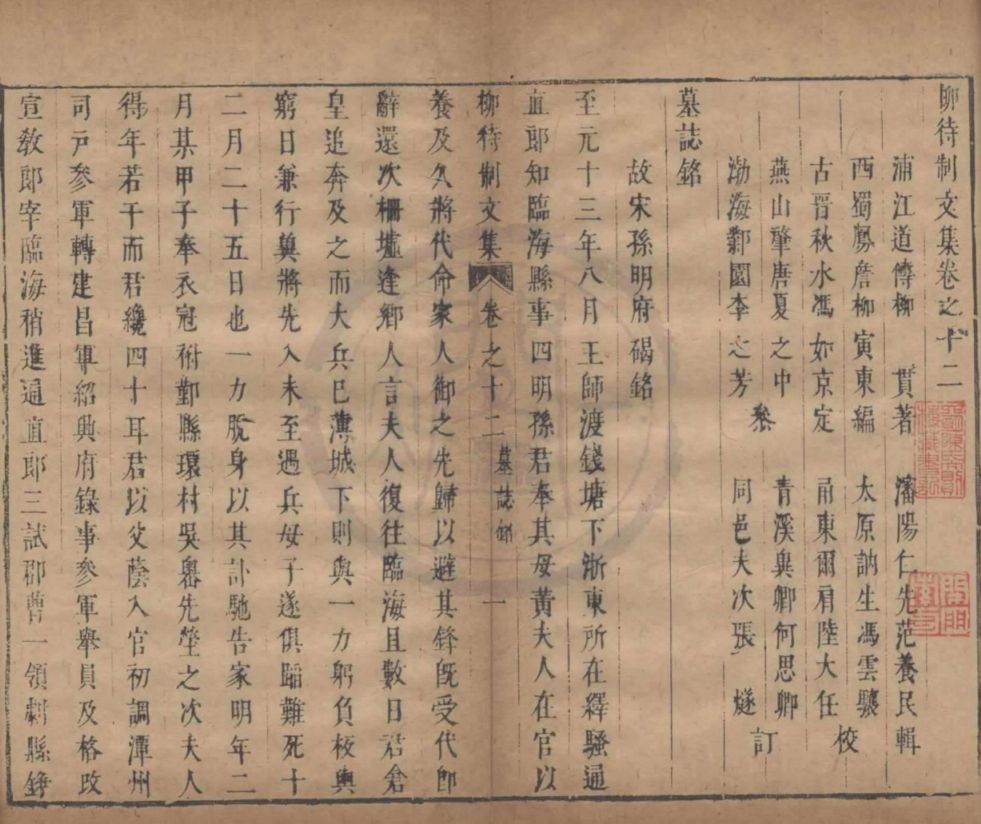 柳待制文集卷之十二
浦江道傳柳　貫著　瀋陽仁先范養民輯
西蜀鳳詹柳寅東編　太原訥生馮雲驤
古晉秋水馮如京定　甬東爾肩陸大任　校
燕山肇唐夏之中　青溪與卿何思卿
渤海鄴園李之芳　參　同邑夫次張燧　訂
墓誌銘
故宋孫明府碣銘
至元十三年八月王師渡錢塘下浙東所在繹騷通
直郎知臨海縣事四明孫君奉其母黃夫人在官以
柳待制文集　卷之十二　墓誌銘　一
養及久將代命家人御之先歸以避其鋒旣受代卽
辭還次柵墟逢鄉人言夫人復往臨海且數日君倉
皇追奔及之而大兵已薄城下則與一力躬負板輿
窮日兼行冀將先入未至遇兵母子遂俱䧟難死十
二月二十五日也一力脫身以其訃馳告家明年二
月某甲子奉衣冠祔鄞縣環村吳嶴先塋之次夫人
得年若干而君纔四十耳君以父蔭入官初調潭州
司戸參軍轉建昌軍紹興府錄事參軍舉員及格改
宣敎郎宰臨海稍進通直郎三試郡曹一領劇縣錚